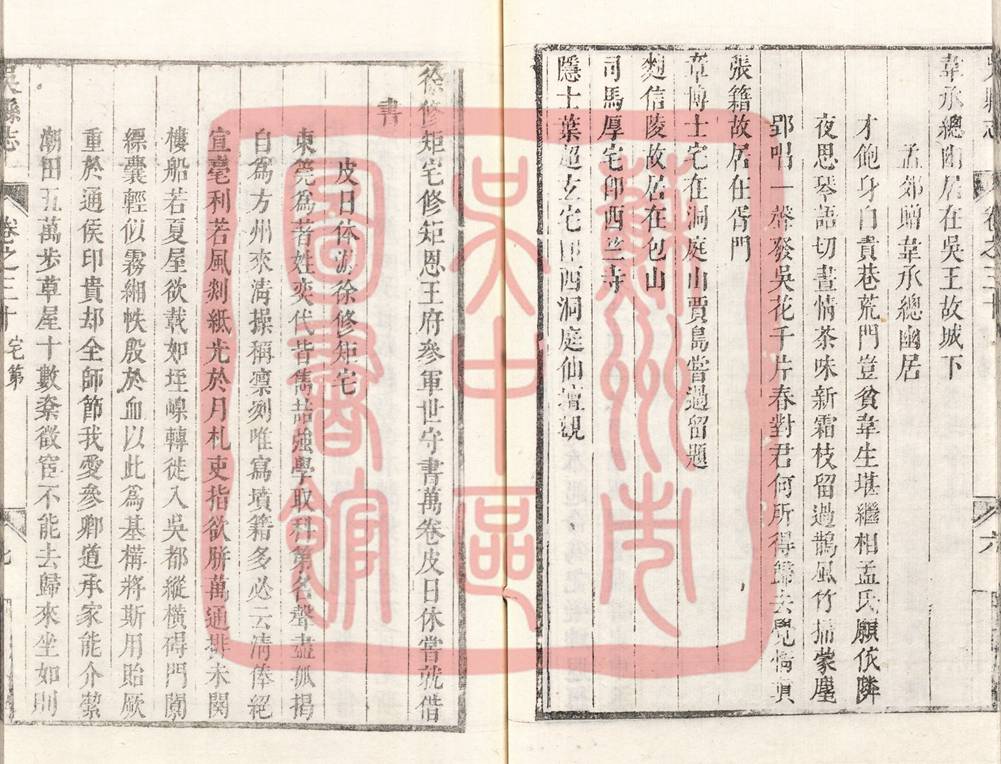 吳縣志 卷之三十 六
韋承總幽居在吳王故城下
孟郊贈韋承總幽居
才飽身自貴巷荒門豈貧韋生堪繼相孟氏願依隣
夜思琴語切晝情茶味新霜枝留過鵲風竹掃蒙塵
郢唱一聲發吳花千片春對君何所得歸去覺情真
張籍故居在胥門
韋博士宅在洞庭山賈島嘗過留題
麴信陵故居在包山
司馬厚宅卽西竺寺
隱士葉超玄宅卽西洞庭仙壇觀
徐修矩宅修矩恩王府參軍世守書萬卷皮日休嘗就借
書
皮日休游徐修矩宅
東莞為著姓奕代皆雋喆強學取科第名聲盡孤揭
自為方州來清操稱凜刻唯寫墳籍多必云清俸絕
宣毫利若風剡紙光於月札吏指欲胼萬通排未闋
樓船若夏屋欲載如垤嵲轉徙入吳都縱橫碍門闑
縹囊輕似霧緗帙殷於血以此為基構將斯用貽厥
重於通侯印貴却全師節我愛參卿道承家能介潔
潮田五萬步草屋十數楶微宦不能去歸來坐如刖
吳縣志 卷之三十 宅第 七
蘇州市
吳中區
圖書館